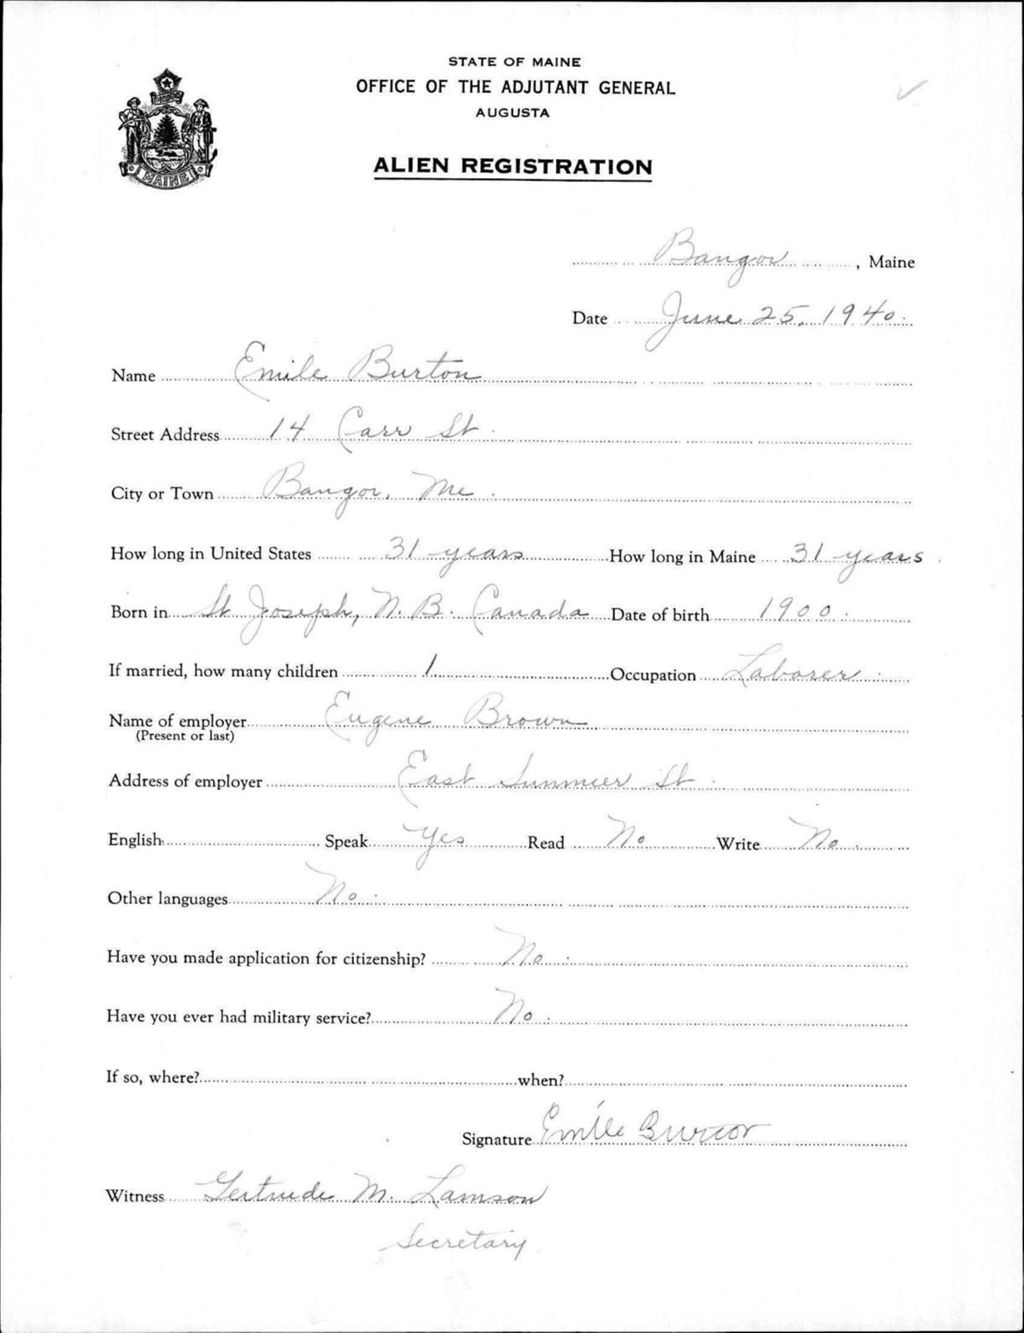 STATE OF MAINE
OFFICE OF THE ADJUTANT GENERAL
AUGUSTA
ALIEN REGISTRATION
MAINE
Bangor, Maine
Date June 25, 1940.
Name Emile Burton
Street Address 14 Carr St.
City or Town Bangor, Me.
How long in United States 31 years How long in Maine 31 years.
Born in St Joseph, N. B. Canada Date of birth 1900.
If married, how many children 1 Occupation Laborer.
Name of employer Eugene Brown
(Present or last)
Address of employer East Summer St.
English Speak Yes Read No Write No.
Other languages No.
Have you made application for citizenship? No.
Have you ever had military service? No.
If so, where? when?
Signature Emile
Witness Gertrude M. Lamson
Secretary